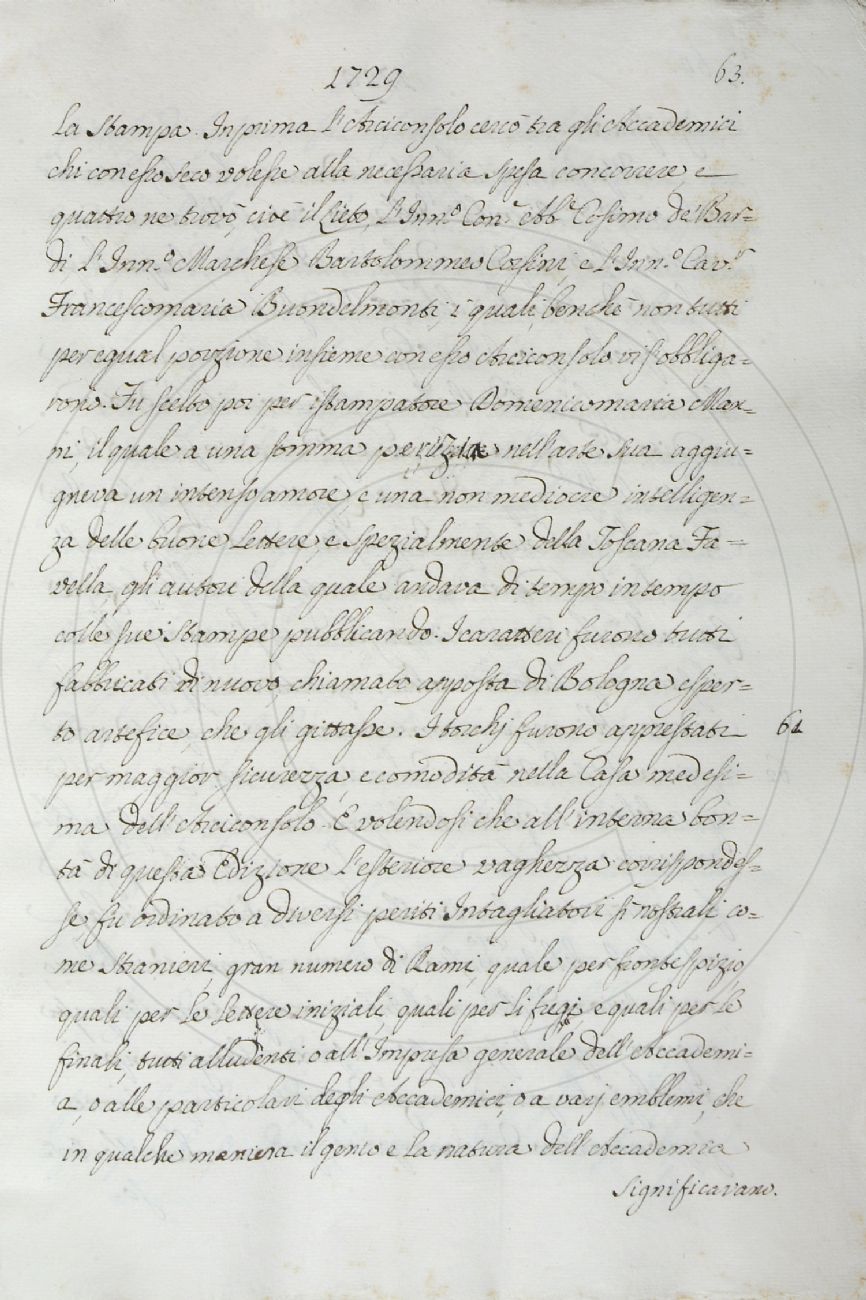 1729
63.
La Stampa. In prima l'Arciconsolo cercò tra gli Accademici
chi con esso seco volesse alla necessaria spesa concorrere, e
quattro ne trovò, cioè il Lieto, l'Inn.º Con.e Abb.e Cosimo de' Bar=
di l'Inn.º Marchese Bartolommeo Corsini, e l'Inn.º Cav.r
Francescomaria Buondelmonti, i quali, benchè non tutti
per egual porzione insieme con esso Arciconsolo vi s'obbliga=
rono. Fu scelto poi per istampatore Domenicomaria Man=
ni, il quale a una somma perizia nell'arte sua aggiu=
gneva un intenso amore, e una non mediocre intelligen=
za delle buone Lettere, e spezialmente della Toscana Fa=
vella, gli autori della quale andava di tempo in tempo
colle sue Stampe pubblicando. I caratteri furono tutti
fabbricati di nuovo, chiamato apposta di Bologna esper=
to artefice, che gli gittasse. I torchj furono apprestati
61
per maggior sicurezza, e comodità nella Casa medesi=
ma dell'Arciconsolo. E volendosi che all'interna bon=
tà di questa Edizione l'esteriore vaghezza corrispondes=
se, fu ordinato a diversi periti Intagliatori sì nostrali, co=
me stranieri, gran numero di Rami, quale per frontespizio,
quali per le Lettere iniziali, quali per li fregi, e quali per le
finali, tutti alludenti o all'Impresa generale dell'Accademi=
a, o alle particolari degli Accademici, o a varj emblemi, che
in qualche maniera il genio e la natura dell'Accademia
significavano.